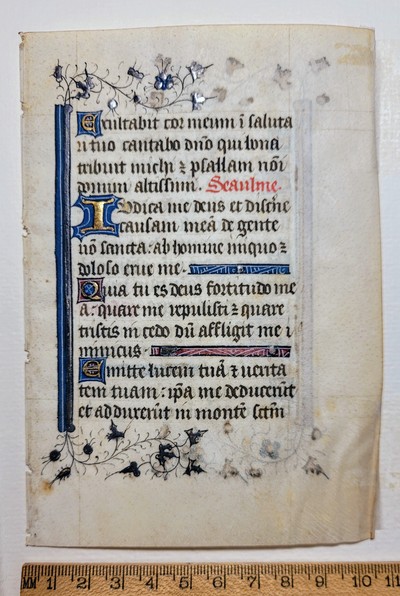 Exultabit cor meum ī saluta
ri tuo cantabo dn̄o qui bona
tribuit michi ⁊ psallam nōi
domini altissimi. Seaulme.
Iudica me deus et discne
causam meā de gente
nō sancta: ab homine iniquo ⁊
doloso erue me.
Quia tu es deus fortitudo me
a: quare me repulisti ⁊ quare
tristis incedo dū affligit me i
nimicus.
Emitte lucem tuā ⁊ uerita
tem tuam: ip̄a me deduxerūt
et adduxerūt in montē sctm̄
MM 1 2 3 4 5 6 7 8 9 10 11